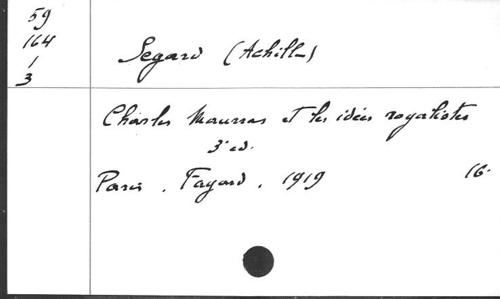 59
164
1
3
Segard (Achille)
Charles Maurras et les idées royalistes
3e ed.
Paris. Fayard. 1919 16.